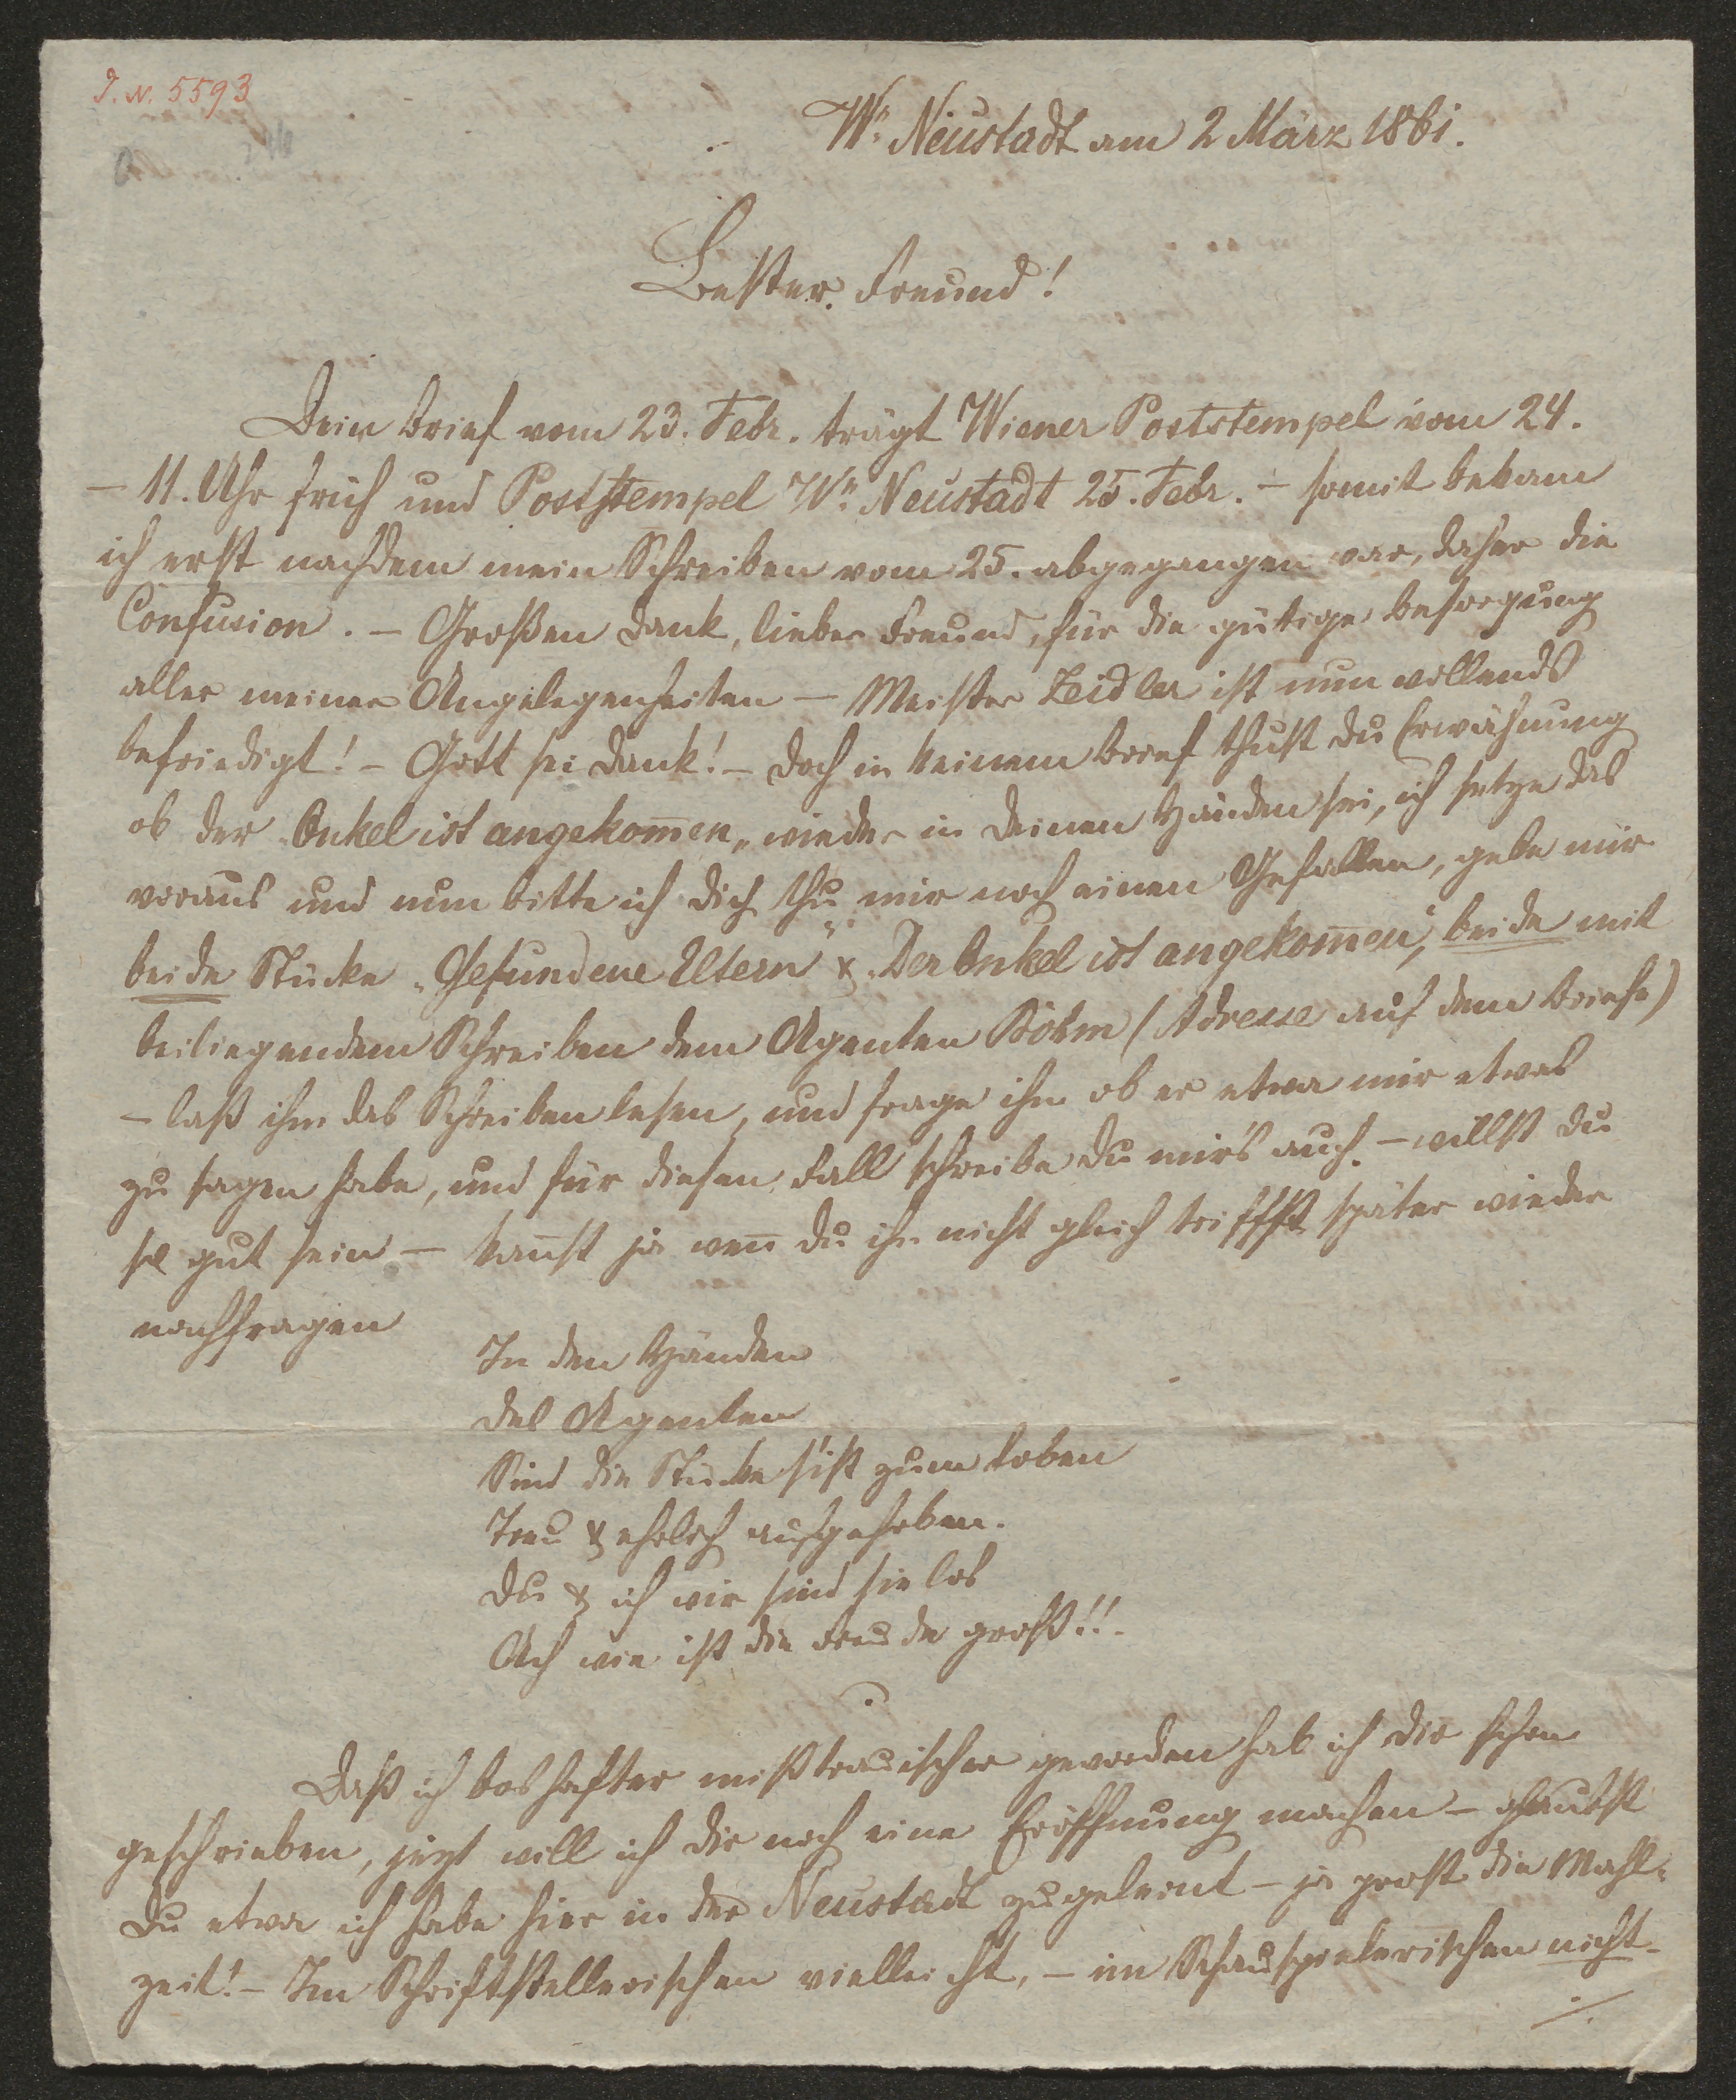 J. N. 5593
Wr. Neustadt am 2 März 1861.
Bester Freund!
Dein Brief vom 23. Febr. trägt Wiener Poststempel vom 24.
– 11. Uhr früh und Poststempel Wr. Neustadt 25. Febr. – somit bekam
ich erst nachdem mein Schreiben vom 25. abgegangen war, daher die
Confusion. – Großen Dank, lieber Freund, für die gütige Besorgung
aller meiner Angelegenheiten – Meister Zeidler ist nun vollends
befriedigt! – Gott sei Dank! – Doch in keinem Brief thust du Erwähnung
ob der Onkel ist angekom̅en„ wieder in Deinen Händen sei, ich setze das
voraus und nun bitte ich dich thu mir noch einen Gefallen, gebe mir
beide Stücke „Gefundene Eltern" & „Der Onkel ist angekom̅en", beide mit
beiliegendem Schreiben dem Agenten Böhm (Adresse auf dem Briefe)
– laß ihn das Schreiben lesen, und frage ihn ob er etwa mir etwas
zu sagen habe, und für diesen Fall schreibe du mir's auch. – willst du
so gut sein – kan̅st ja wen̅ du ihn nicht gleich triffst später wieder
nachfragen
In den Händen
Des Agenten
Sind die Stücke s'ist zum toben
Treu & ehrlich aufgehoben.
Du & ich wir sind sie los
Ach wie ist die Freude groß!!
Daß ich boshafter mißtrauischer geworden hab ich dir schon
geschrieben, jezt will ich dir noch eine Eröffnung machen – glaubst
Du etwa ich habe hier in der Neustadt zugelernt – ja prost die Mahl-
zeit! – Im Schriftstellerischen vielleicht, – im Schauspielerischen nicht –
./.